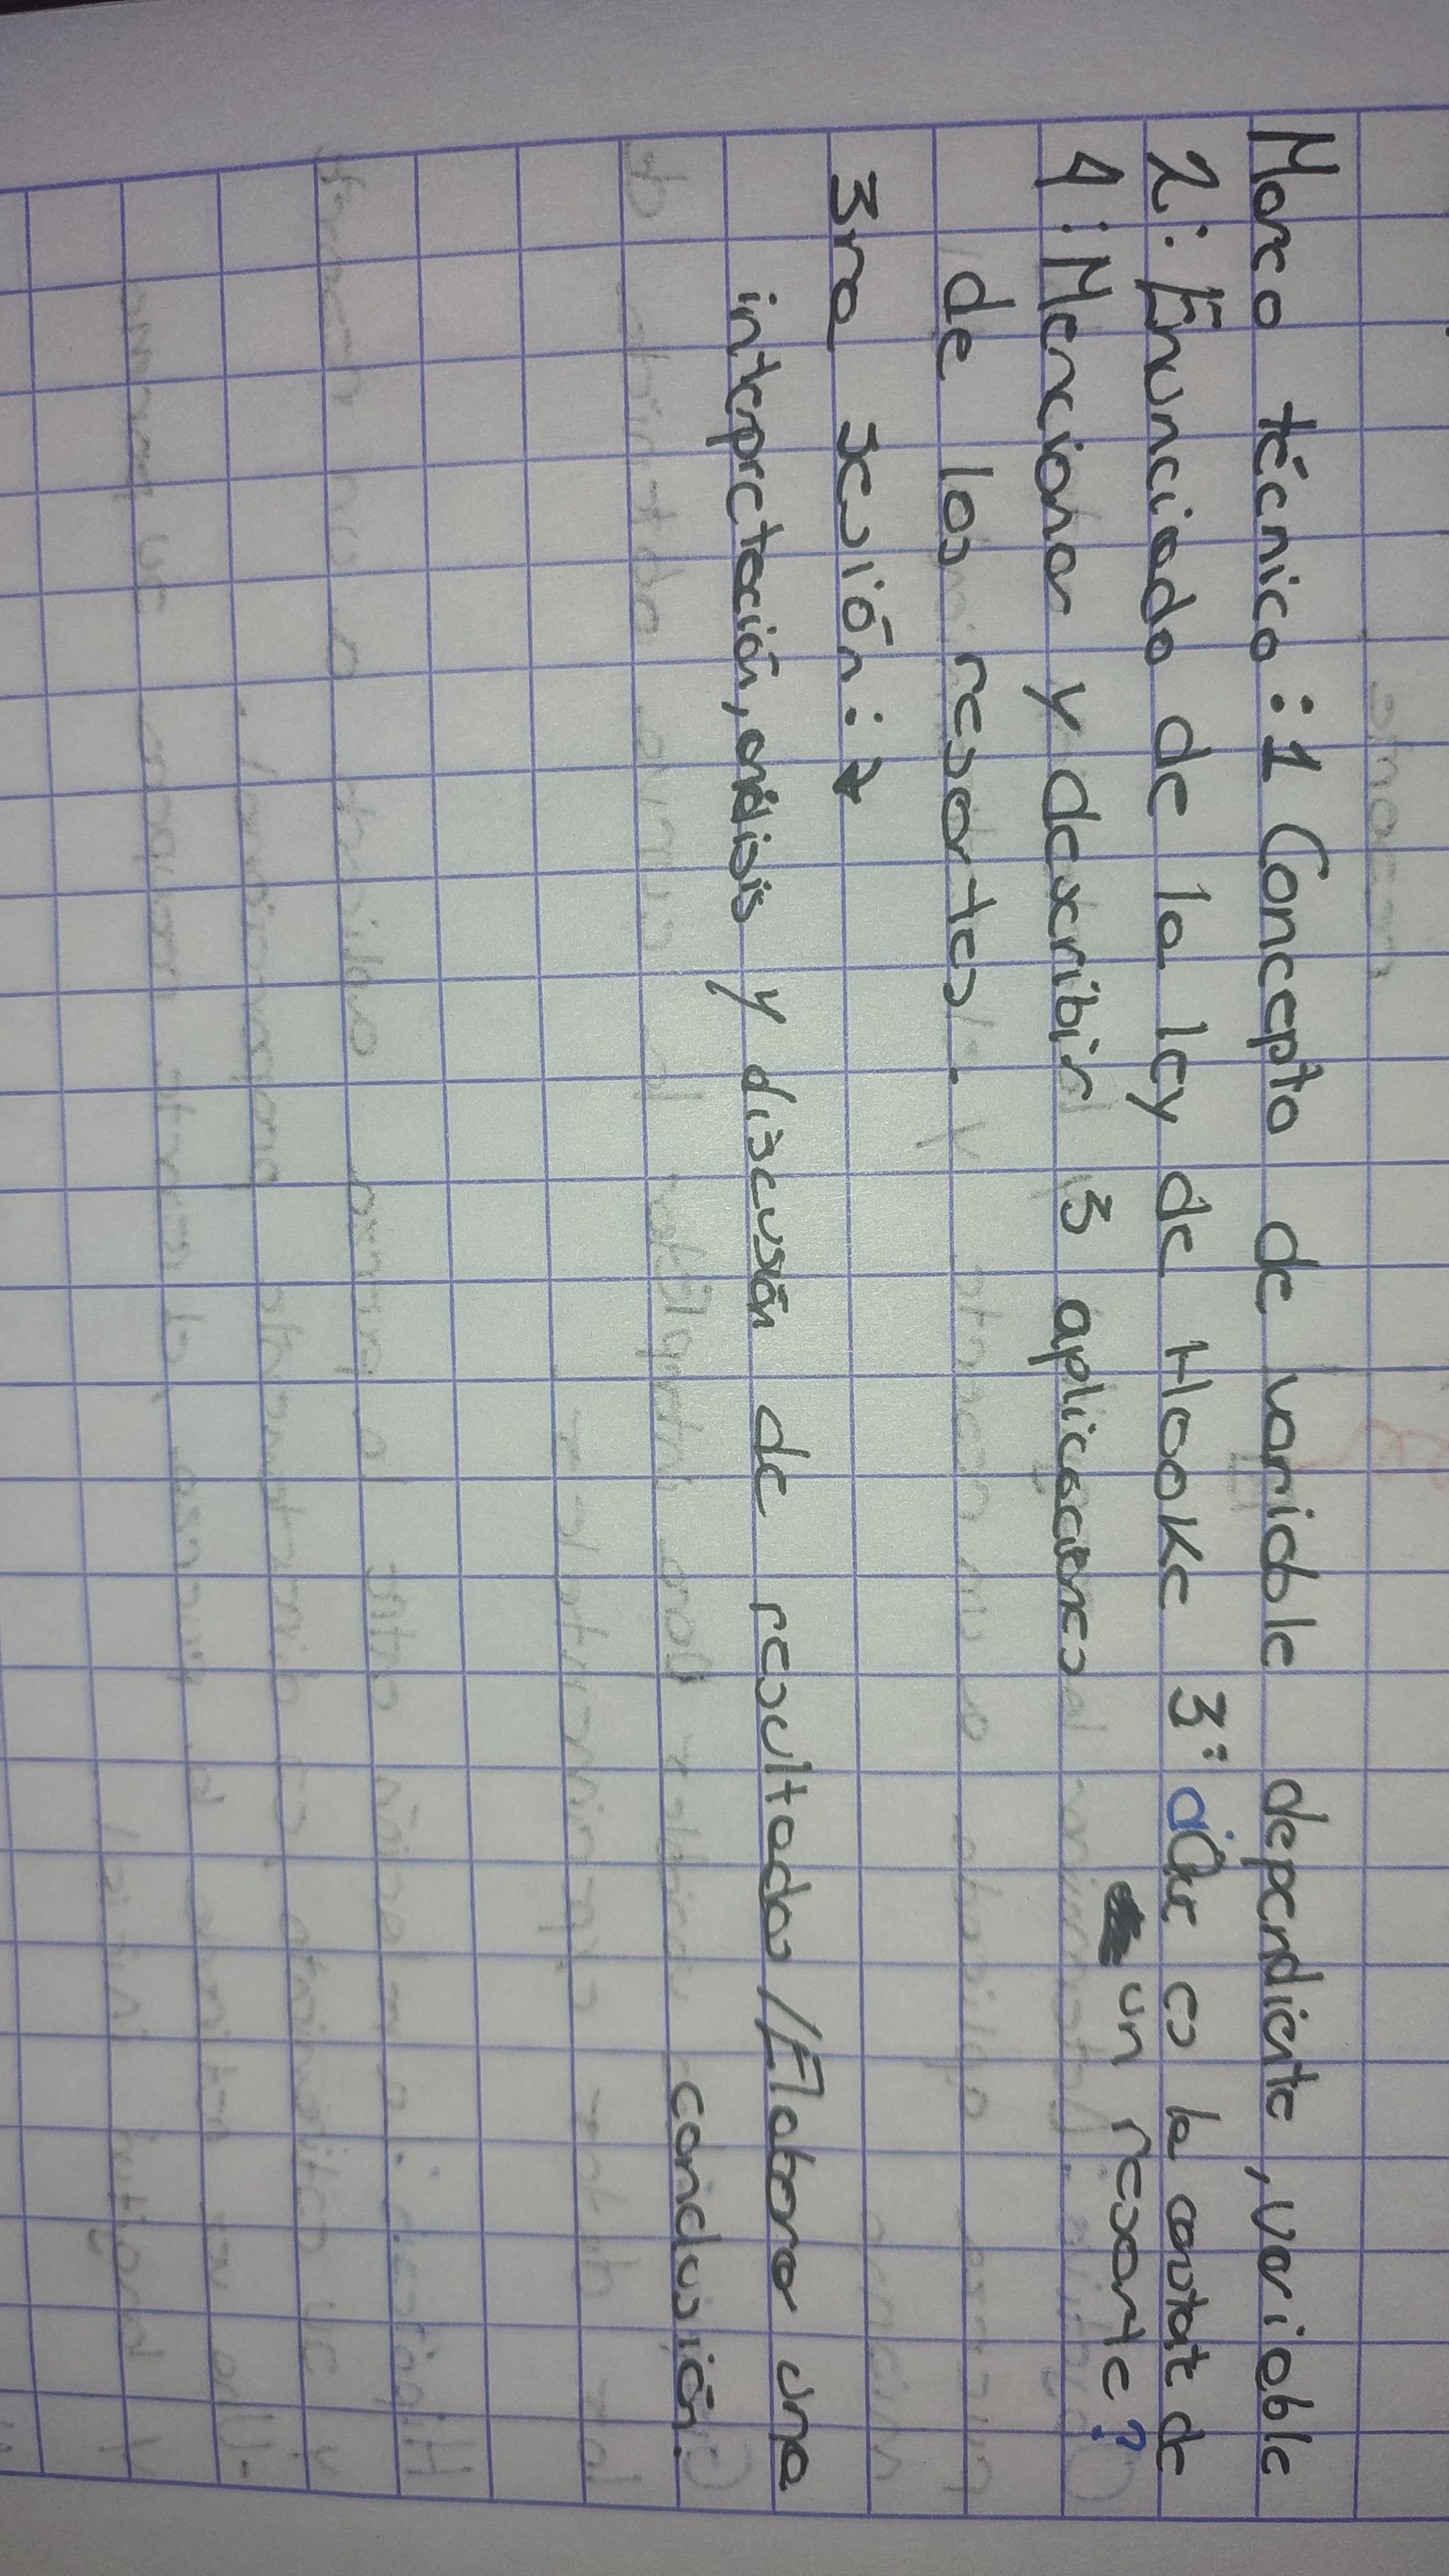 Marco técnico: 1 Concepto de variable dependiente, variable
2: Enunciado de la ley de Hooke 3: ¿Que es la constat de
un resorte?
4: Mencionar y describir 3 aplicaciones
de los resortes.
3ra sesión:
interpretación, análisis y discusión de resultados / Elaborar una
conclusión.